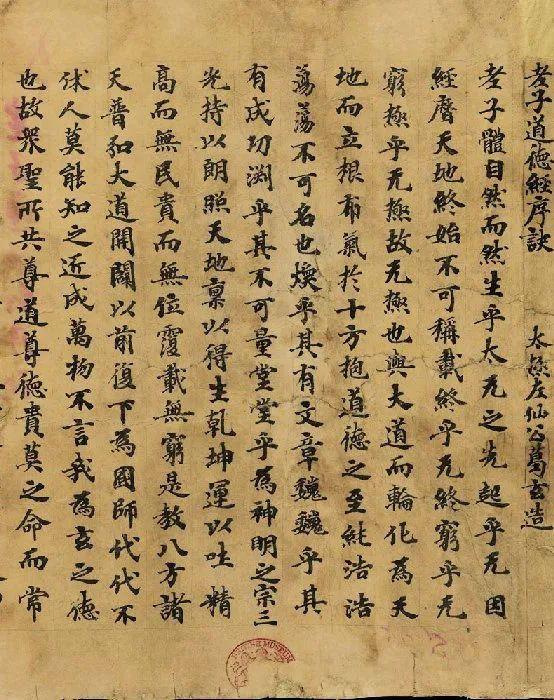 老子道德經序訣 太極左仙公葛玄造
老子體自然而然生乎太无之先起乎无因
經歷天地終始不可稱載終乎无終窮乎无
窮極乎无極故无極也與大道而輪化為天
地而立根布氣於十方抱道德之至純浩浩
蕩蕩不可名也煥乎其有文章巍巍乎其
有成功淵乎其不可量堂堂乎為神明之宗三
光持以朗照天地稟以得生乾坤運以吐精
高而無民貴而無位覆載無窮是教八方諸
天普弘大道開闢以前復下為國師代代不
休人莫能知之匠成萬物不言我為玄之德
也故衆聖所共尊道尊德貴莫之命而常
BRITISH MUSEUM